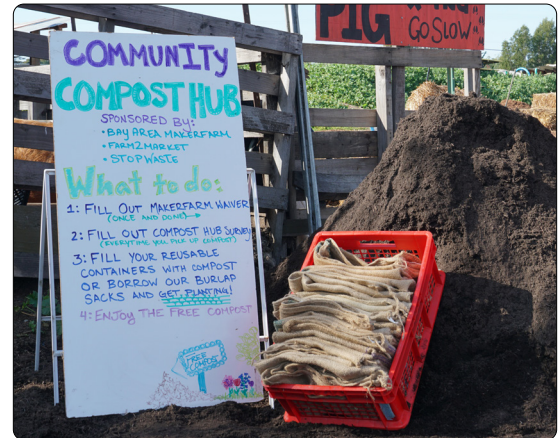 PIG
GO SLOW
COMMUNITY
COMPOST HUB
SPONSORED BY:
• BAY AREA MAKERFARM
• FARM2MARKET
• STOPWASTE
What to do:
1: FILL OUT MAKERFARM WAIVER
(ONCE AND DONE)→
2: FILL OUT COMPOST HUB SURVEY
(EVERYTIME YOU PICK UP COMPOST)
3: FILL YOUR REUSABLE
CONTAINERS WITH COMPOST
OR BORROW OUR BURLAP
SACKS AND GET PLANTING!
4: ENJOY THE FREE COMPOST
FREE
COMPOST